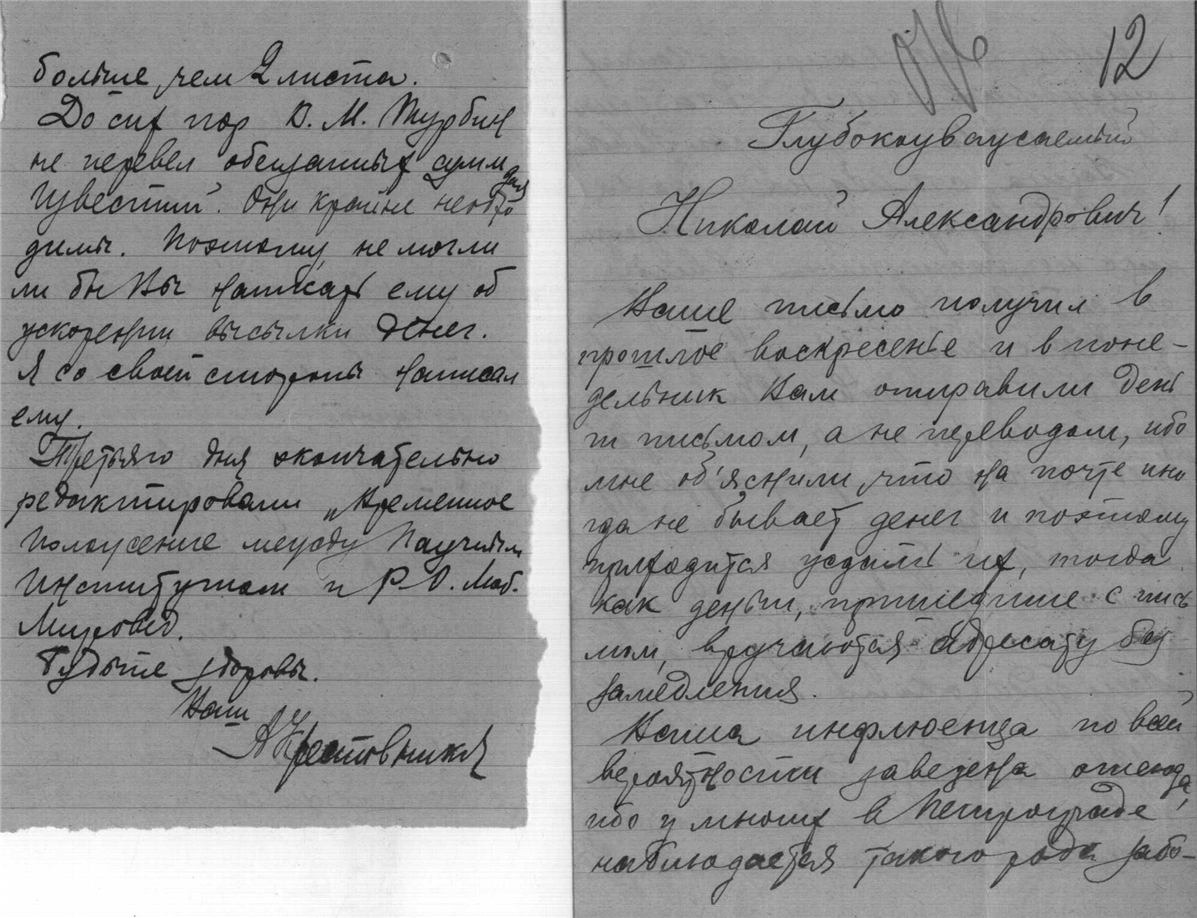 больше, чем 2 листа.
До сих пор В. М. Турбин
не перевел обещанных сумм для
Известий. Они крайне необхо
димы. Поэтому, не могли
ли бы Вы написать ему об
ускорении высылки денег.
Я со своей стороны написал
ему.
Третьяго дня окончательно
редактировали „Временное
положение между Научным
Институтом и Р. О. Люб.
Мировед.
Будьте здоровы.
Ваш
12
Глубокоуважаемый
Николай Александрович!
Ваше письмо получил в
прошлое воскресенье и в поне-
дельник Вам отправили день
ги письмом, а не переводом, ибо
мне об'яснили, что на почте ино
гда не бывает денег и поэтому
приходится ждать их, тогда
как деньги, пришедшие с пись
мом, вручаются адресату без
замедления.
Ваша инфлюенца по всей
вероятности завезена отсюда,
ибо у многих в Петрограде
наблюдается такого рода забо-